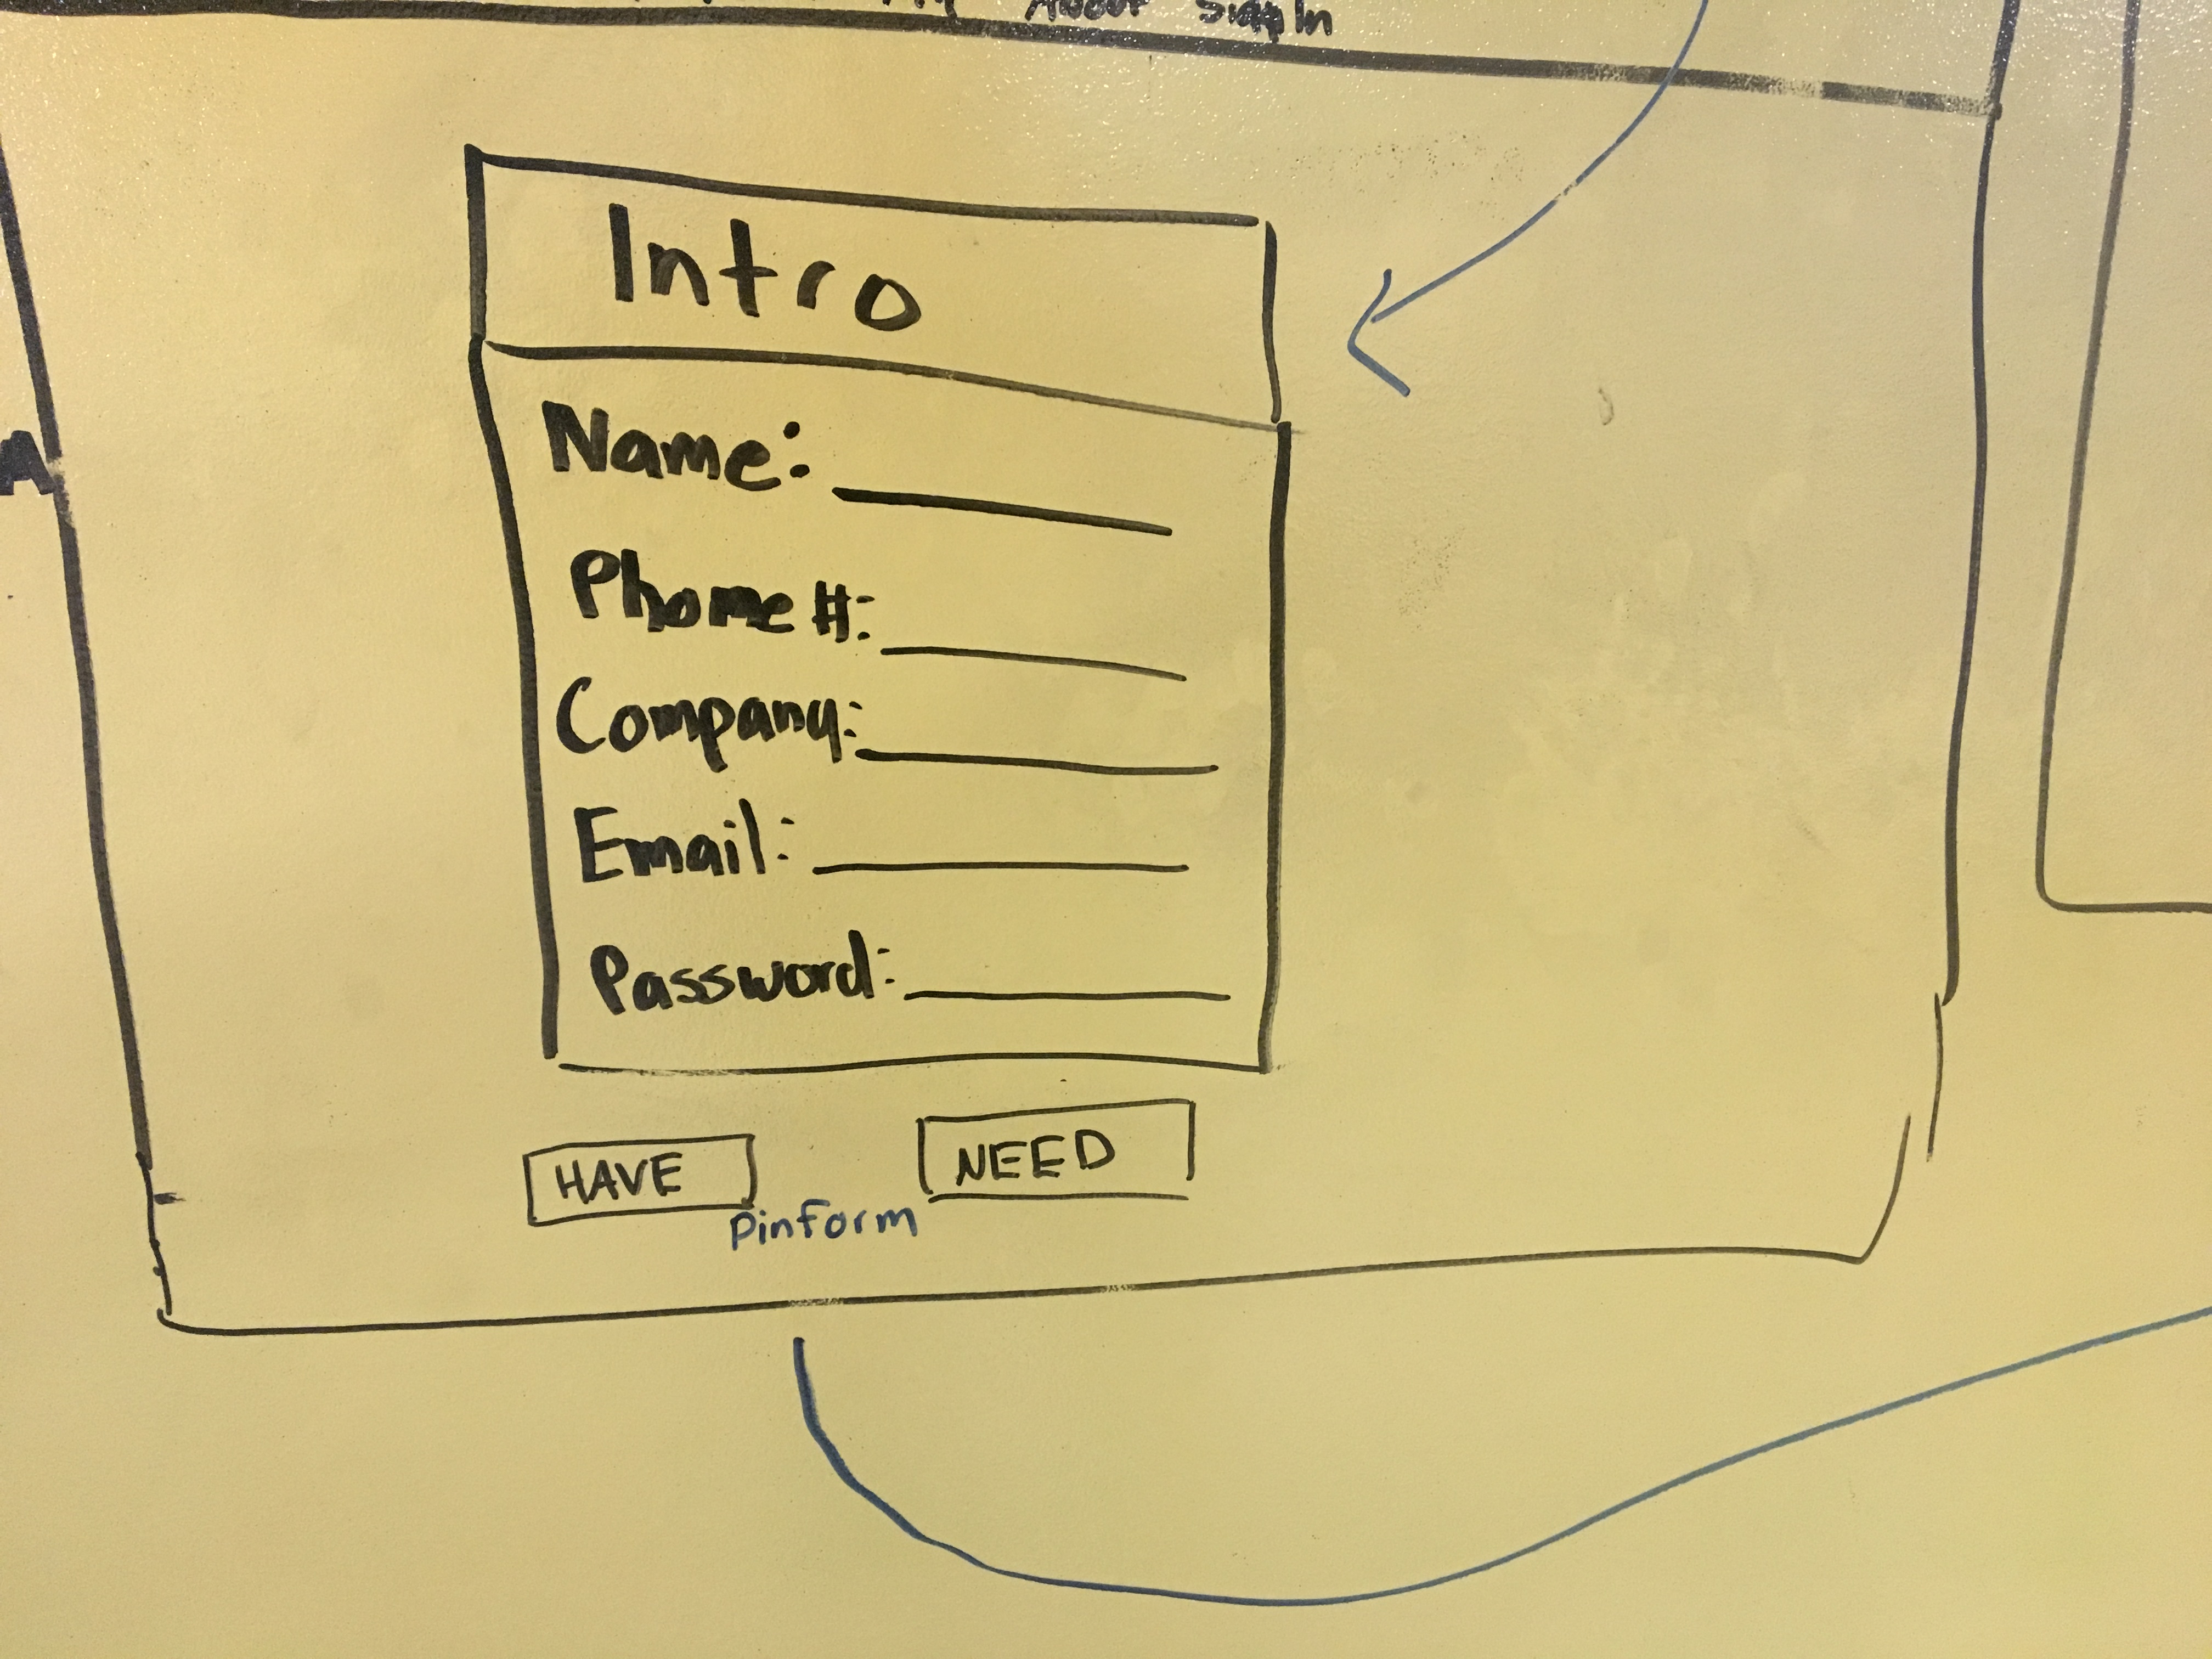 About SignIn
Intro
Name:
Phone #:
Company:
Email:
Password:
HAVE
NEED
Pinform